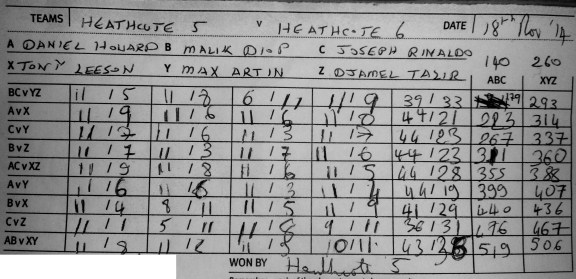 TEAMS HEATHCOTE 5 V HEATHCOTE 6 DATE 18th Nov '14
A DANIEL HOWARD B MALIK DIOP C JOSEPH RINALDO 140 260
X TONY LEESON Y MAX ARTIN Z DJAMEL TAZIR ABC XYZ
BCvYZ 11/5 11/8 6/11 11/9 39/33 179 293
AvX 11/9 11/6 11/6 11/0 44/21 223 314
CvY 11/7 11/6 11/3 11/7 44/23 267 337
BvZ 11/7 11/3 11/7 11/6 44/23 311 360
ACvXZ 11/9 11/8 11/6 11/5 44/28 355 388
AvY 11/6 11/6 11/3 11/4 44/19 399 407
BvX 11/4 8/11 11/5 11/9 41/29 440 436
CvZ 11/1 5/11 11/8 9/11 36/31 476 467
ABvXY 11/8 11/2 11/8 10/11 43/38 519 506
WON BY Heathcote 5